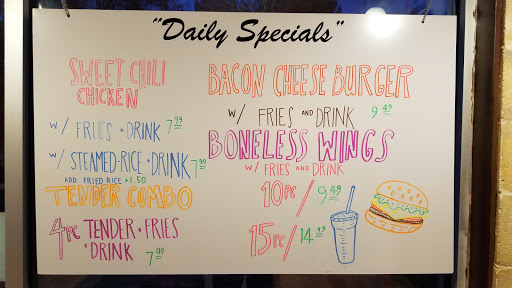 "Daily Specials"
SWEET CHILI
CHICKEN
W/ FRIES + DRINK 7.99
W/ STEAMED-RICE + DRINK 7.99
ADD FRIED RICE +1.50
TENDER COMBO
4PC TENDER + FRIES
+ DRINK 7.49
BACON CHEESE BURGER
W/ FRIES AND DRINK 9.49
BONELESS WINGS
W/ FRIES AND DRINK
10PC / 9.49
15PC / 14.49